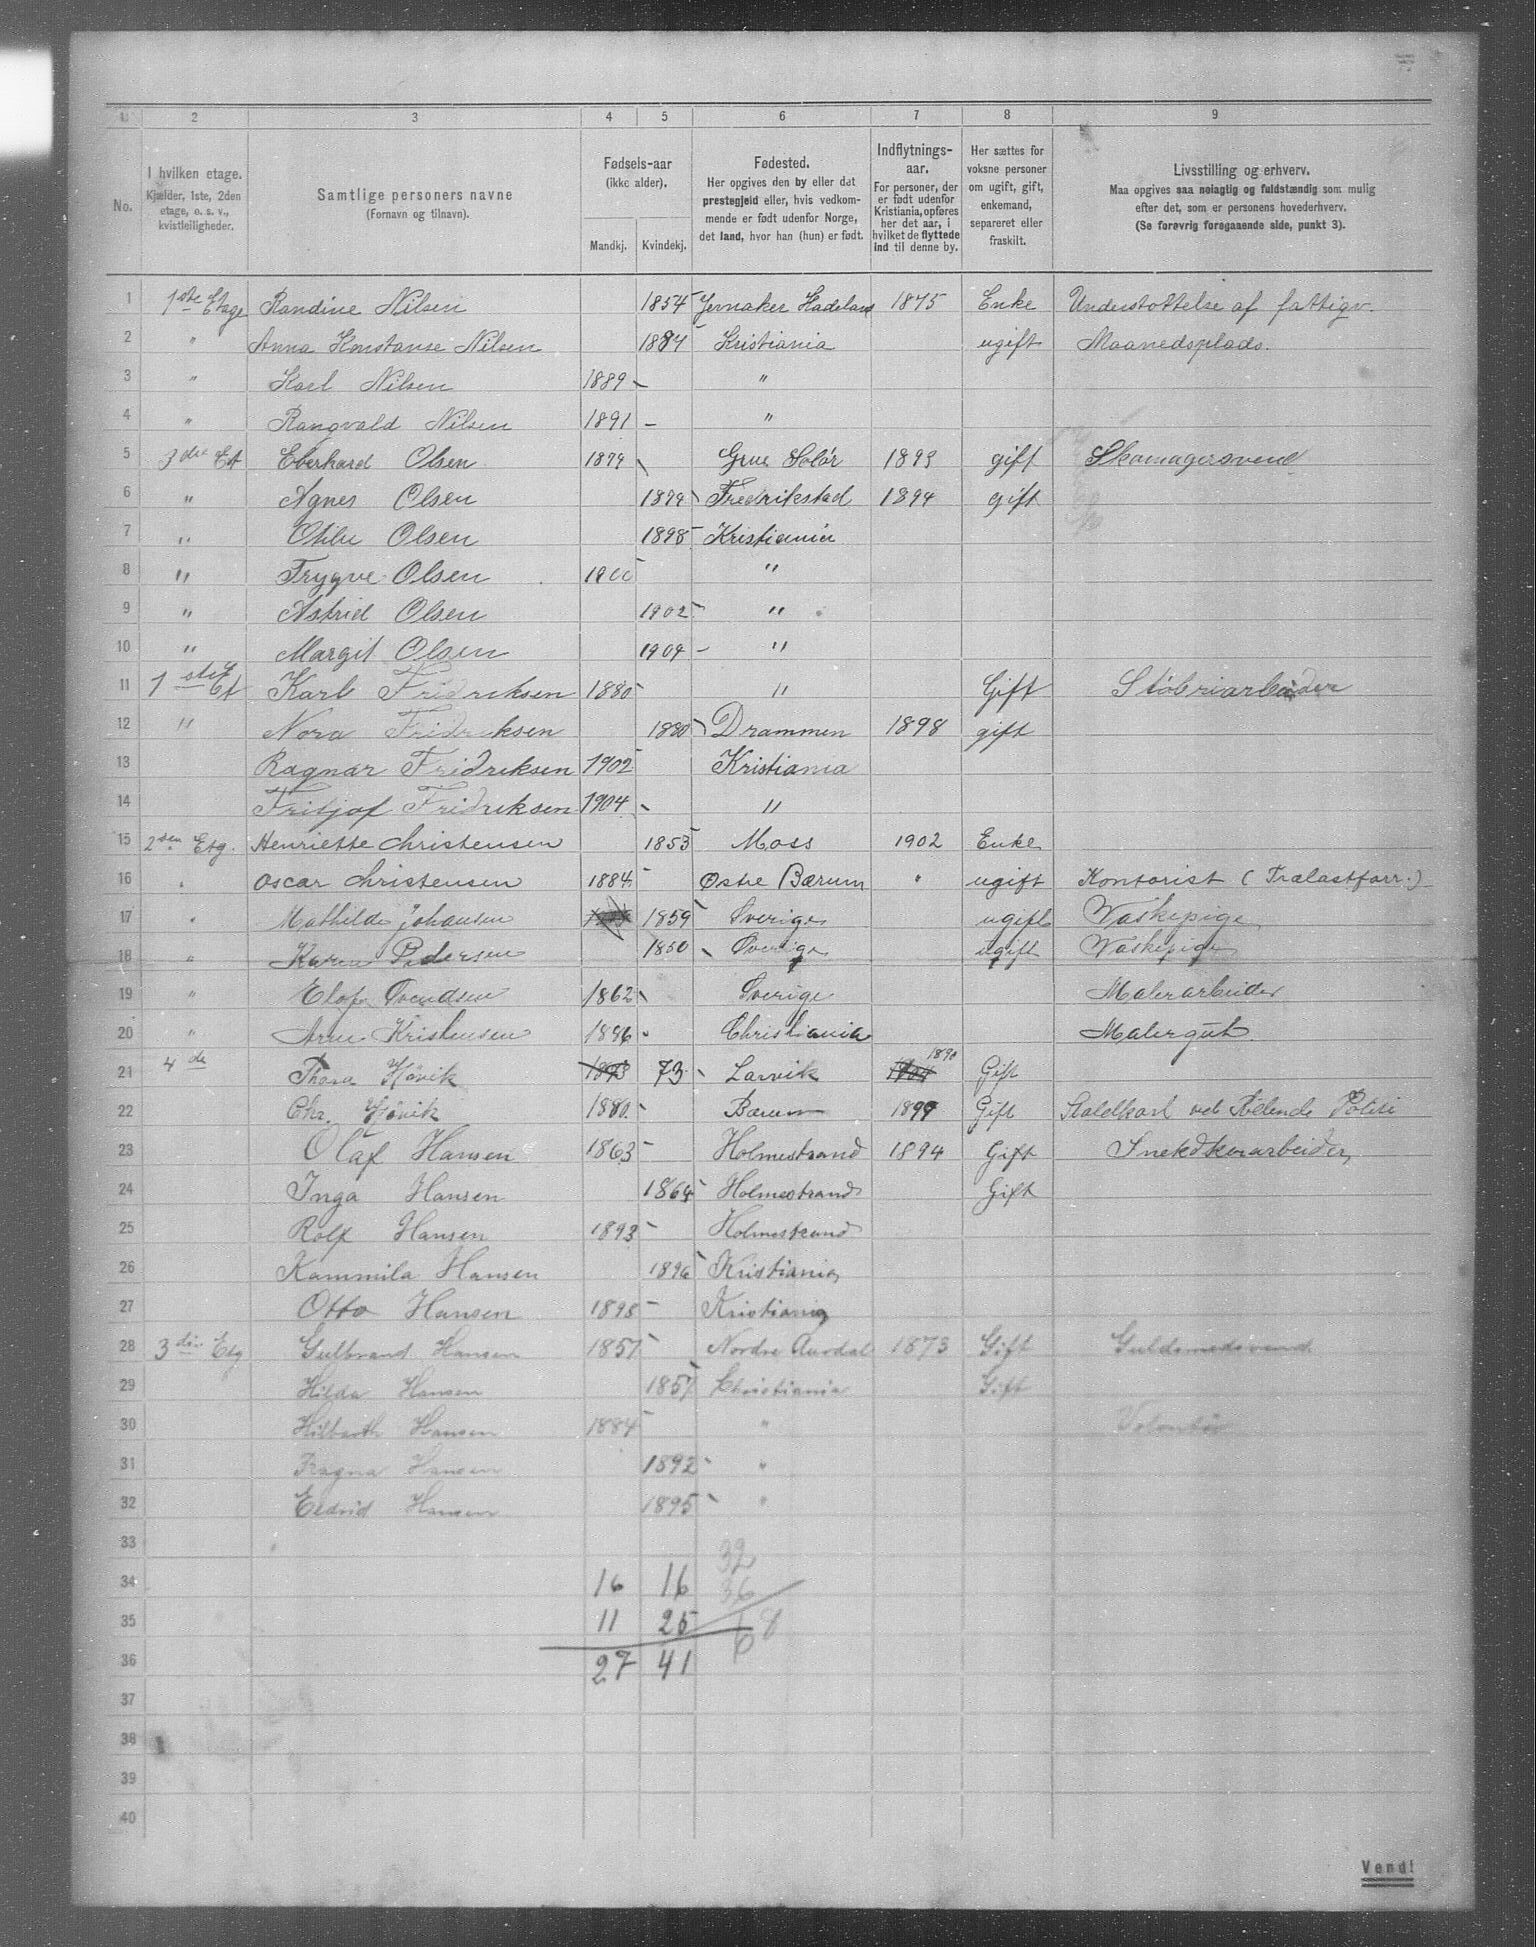 1 2 3 4 5 6 7 8 9
No.
I hvilken etage.
Kjælder, 1ste, 2den
etage, o. s. v.,
kvistleiligheder.
Samtlige personers navne
(Fornavn og tilnavn).
Fødsels-aar
(ikke alder).
Mandkj. Kvindekj.
Fødested.
Her opgives den by eller det
prestegjeld eller, hvis vedkom-
mende er født udenfor Norge,
det land, hvor han (hun) er født.
Indflytnings-
aar.
For personer, der
er født udenfor
Kristiania, opføres
her det aar, i
hvilket de flyttede
ind til denne by.
Her sættes for
voksne personer
om ugift, gift,
enkemand,
separeret eller
fraskilt.
Livsstilling og erhverv.
Maa opgives saa nøiagtig og fuldstændig som mulig
efter det, som er personens hovederhverv.
(Se forøvrig foregaaende side, punkt 3).
1 1ste Etage Randine Nilsen 1854 Jevnaker Hadeland 1875 Enke Understøttelse af fattigv.
2 " Anna Konstanse Nilsen 1884 Kristiania ugift Maanedsplads.
3 " Karl Nilsen 1889 "
4 " Rangvald Nilsen 1891 "
5 3die Et Eberhard Olsen 1874 Grue Solør 1893 gift Skomagersvend
6 " Agnes Olsen 1874 Fredrikstad 1894 gift
7 " Otilie Olsen 1898 Kristiania
8 " Trygve Olsen 1900 "
9 " Astrid Olsen 1902 "
10 " Margit Olsen 1904 "
11 1ste Et Karl Fridriksen 1880 " Gift Støberiarbeider
12 " Nora Fridriksen 1880 Drammen 1898 gift
13 Ragnar Fridriksen 1902 Kristiania
14 Fritjof Fridriksen 1904 "
15 2den Etg. Henriette Christensen 1853 Moss 1902 Enke
16 " Oscar Christensen 1884 Østre Bærum " ugift Kontorist (Trælastforr.)
17 " Mathilde Johansen 1859 Sverige ugift Vaskepige
18 " Karen Pedersen 1850 Sverige ugift Vaskepige
19 " Elof Svendsen 1862 Sverige Malerarbeider
20 " Arne Kristensen 1896 Christiania Malergut.
21 4de Thora Høvik 1873 73 Larvik 1890 Gift
22 Chr. Høvik 1880 Bærum 1899 Gift Staldkarl ved Ridende Politi
23 Olaf Hansen 1863 Holmestrand 1894 Gift Snedkerarbeider
24 Inga Hansen 1864 Holmestrand Gift
25 Rolf Hansen 1893 Holmestrand
26 Kammila Hansen 1896 Kristiania
27 Otto Hansen 1898 Kristiania
28 3die Etg Gulbrand Hansen 1857 Nordre Aurdal 1873 Gift Guldsmedsvend
29 Hilda Hansen 1857 Christiania Gift
30 Hansen 1884 " Volontør
31 Ragna Hansen 1892 "
32 Eldrid Hansen 1895 "
33 32
34 16 16 36
35 11 25 68
36 27 41
37
38
39
40
Vend!